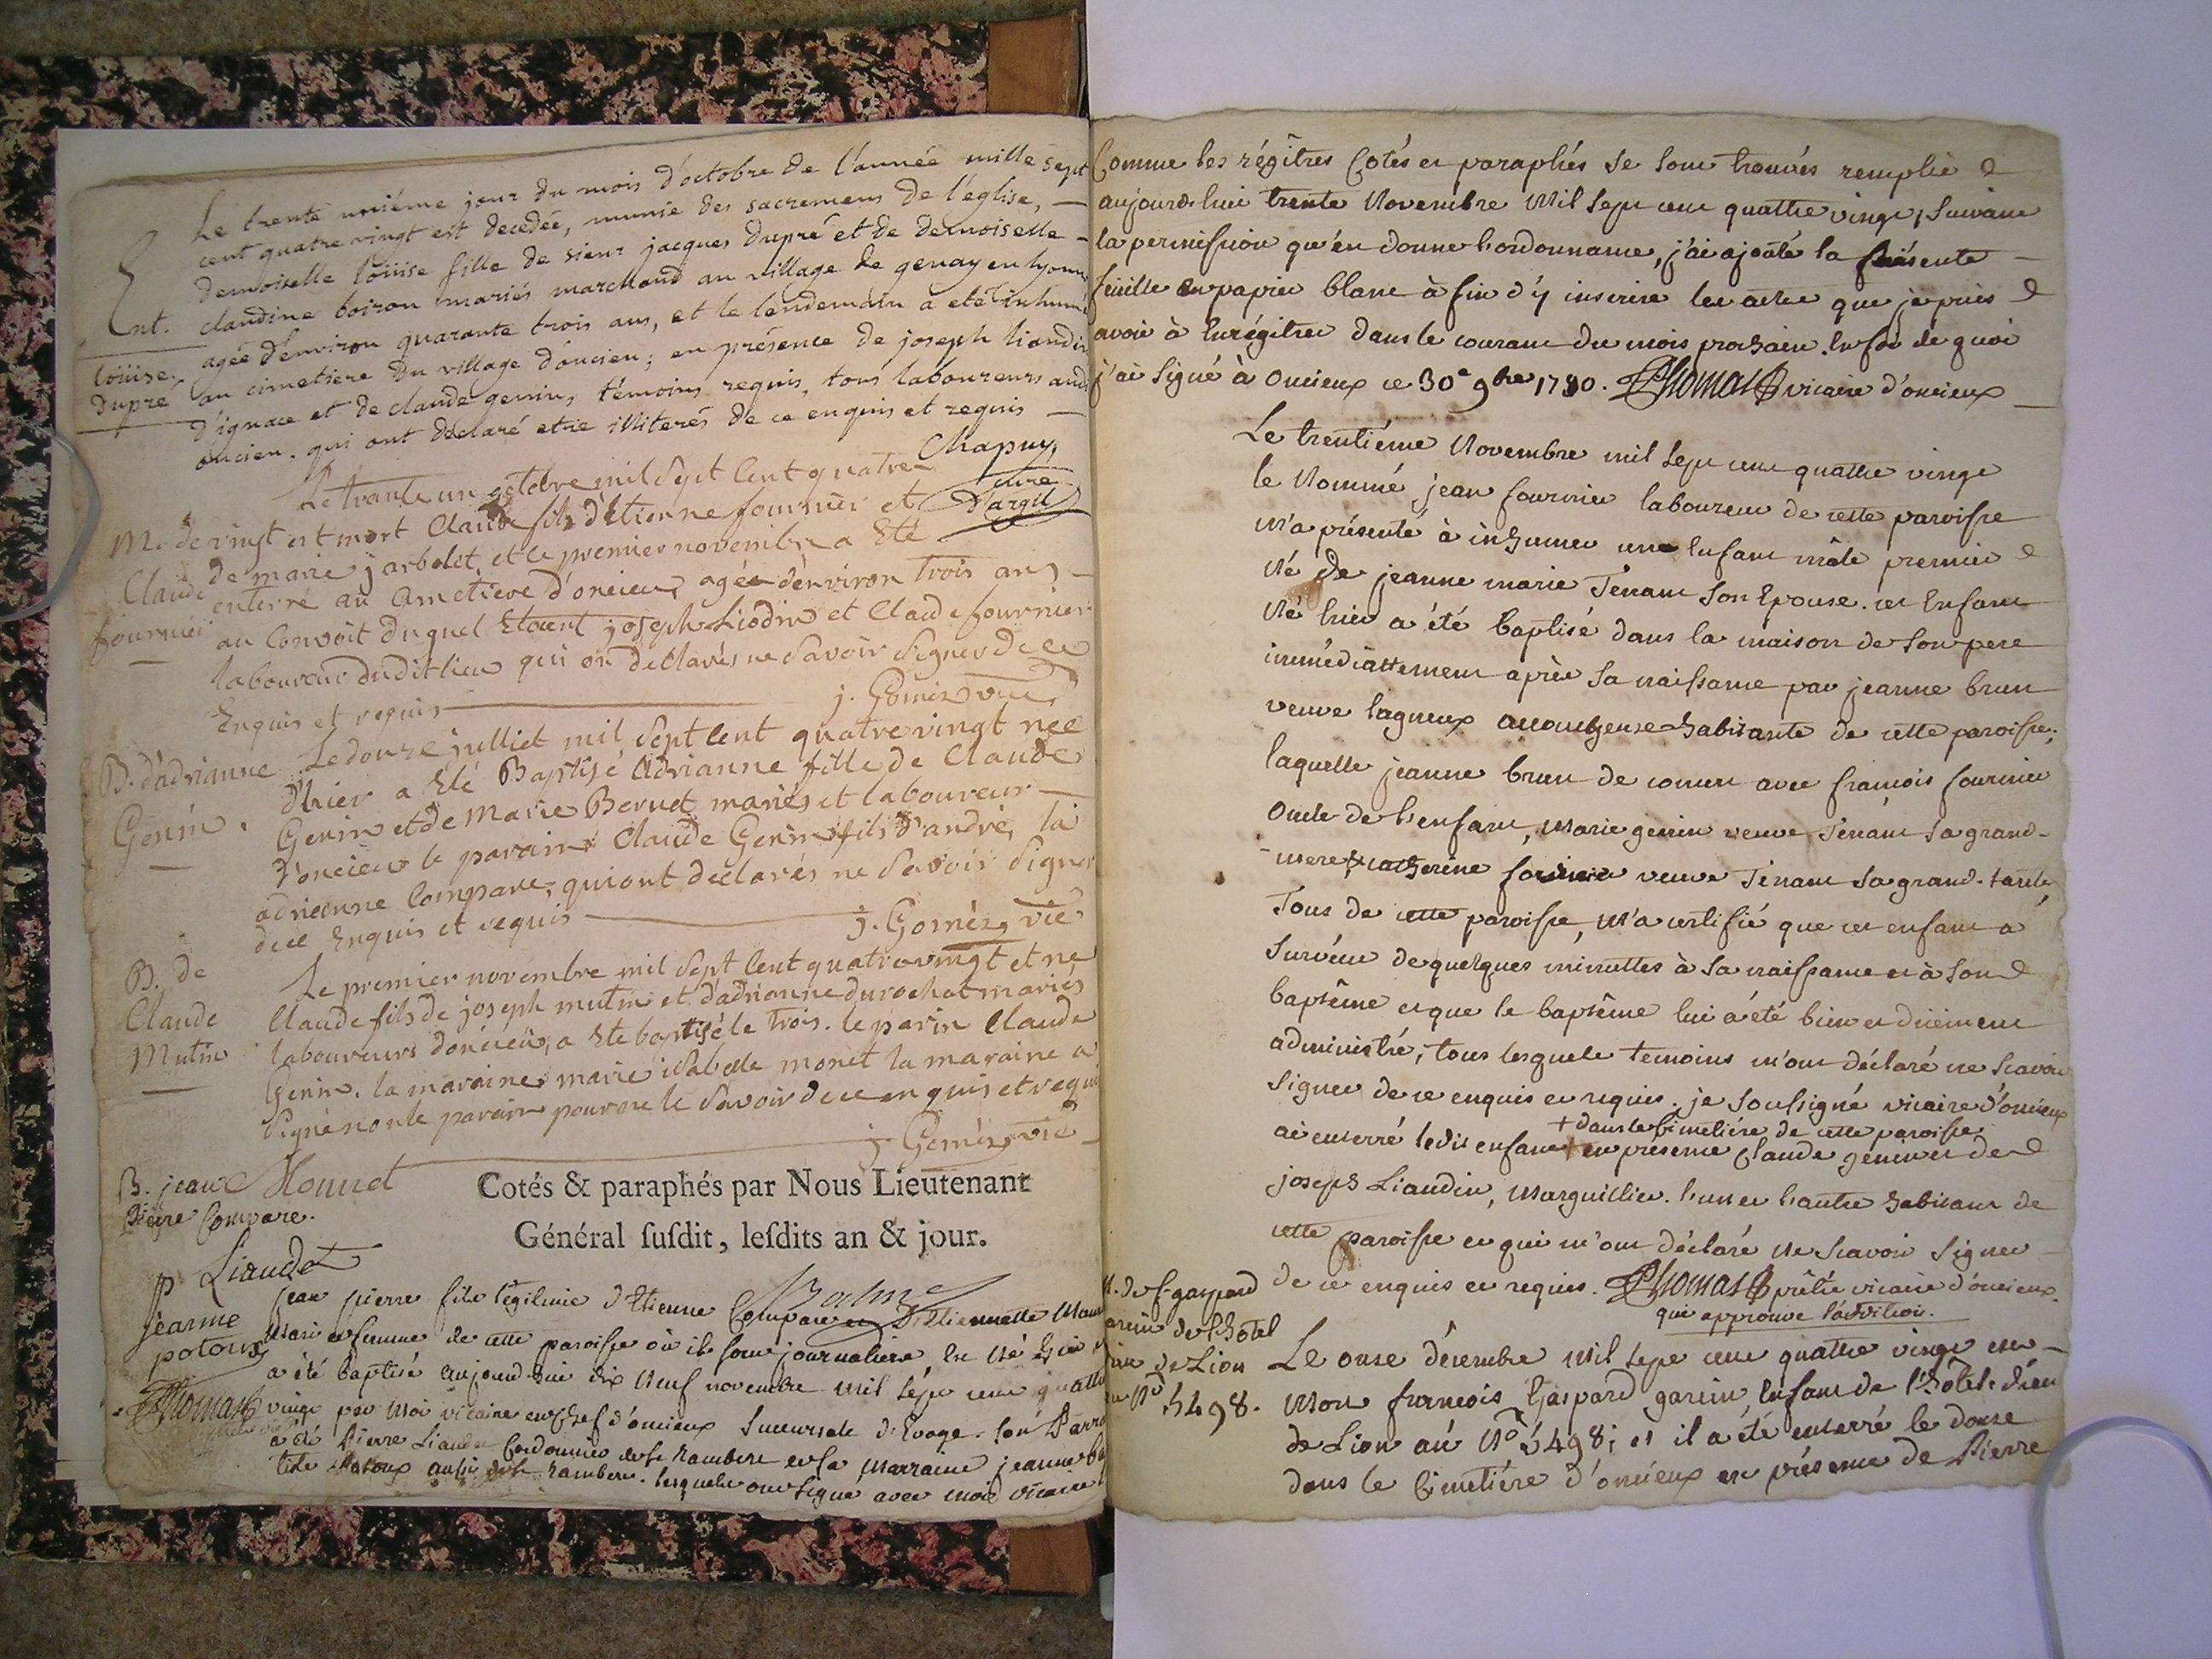 Le trente uniéme jour du mois d'octobre de l'année mille sept
cent quatre vingt est decedée, munie des sacremens de l'église,
demoiselle loüise fille de sieur jacques dupré et de demoiselle
claudine boiron mariés marchand au village de genay en lyonn
agée d'environ quarante trois ans, et le lendemain a eté inhumé
au cimetiere du village d'oncieu; en présence de joseph liandin
d'ignace et de claude genin, témoins requis, tous laboureurs aud
oncieu. qui ont declaré etre illiterés de ce enquis et requis
Ent.
loüise
dupré
Chapuy,
curé
D'argil
Le trante un octobre mil Sept Cent quatre
vingt est mort Claude fils d'étienne fournier et
de marie jarbolet, et le premier novembre a Eté
enterré au Cimetiere d'oncieu, agée d'environ trois ans
au Convoit duquel Etoient joseph Liodin et Claude fournier
laboureur dudit lieu qui on declarés ne Savoir Signer de ce
Enquis et requis
j. Gomèz vic
M. de
Claude
fournier
B. d'adrianne
Genin.
Le douze julliet mil Sept Cent quatre vingt née
d'hier a Eté Baptisé Adrianne fille de Claude
Genin et de Marie Bernet mariés et laboureur
d'oncieu le parain Claude Genin fils d'andré, la
adrienne Compare, qui ont declarés ne Savoir Signer
de ce Enquis et requis
j. Gomèz, vic
B. de
Claude
Mutin
Le premier novembre mil Sept Cent quatre vingt et né
Claude fils de joseph mutin et d'adrianne durochat mariés
laboureurs d'oncieu, a Ete baptisé le trois. le parin Claude
Genin. la maraine marie isabelle monet la maraine a
Signé non le parain pour ne le Savoir de ce enquis et requi
j. Gomèz, vic
Monnet
B. jean
Pierre Compare.
Cotés & paraphés par Nous Lieutenant
Général susdit, lesdits an & jour.
P Liaudet
jeanne
potoux
Thomas
Balme
jean pierre fils légitime d'Etienne Compare et d'Etiennette
Mari et femme de cette paroisse où ils sont journaliers, est né hier
a été baptisé aujourd'hui dix neuf novembre mil sept cent quatre
vingt par moi vicaire en chef d'oncieux succursale d'Evoge. son Parr
a été Pierre Liaudet Cordonnier de St Rambert et sa Marraine jeanne
potoux aussi de St Rambert. lesquels ont signé avec moi vicaire
Comme les régîtres Cotés et paraphés se sont trouvés remplis
aujourdhui trente Novembre Mil sept cent quattre vingt, suivant
la permission qu'en donne l'ordonnance, j'ai ajouté la présente
feüille en papier blanc à fin d'y inscrire les actes que je puis
avoir à Enrégitrer dans le courant du mois prochain. En foi de quoi
j'ai signé à Oncieux ce 30e 9bre 1780. Thomas vicaire d'oncieux
Le trentiéme Novembre mil sept cent quattre vingt
le Nommé jean fournier laboureur de cette paroisse
m'a présenté à inhumer un Enfant mâle premier
Né de jeanne marie Tenant son Epouse. cet Enfant
Né hier a été baptisé dans la maison de son pere
immédiattement après sa naissance par jeanne brun
veuve lagneux accoucheuse habitante de cette paroisse;
laquelle jeanne brun de concert avec françois fournier
Oncle de l'enfant, Marie genin veuve Tenant sa grand-
mere, & catherine fournier veuve Tenant sa grand-tante,
Tous de cette paroisse, M'a certifié que cet enfant a
survécu de quelques minuttes à sa naissance et à son
baptême et que le baptême lui a été bien et düement
administré, tous lesquels temoins m'ont déclaré ne scavoir
signer de ce enquis et requis. je soussigné vicaire d'oncieux
+ dans le Cimetiére de cette paroisse
ai enterré ledit enfant + en presence Claude genin et de
joseph Liaudin, Marguillier. l'un et l'autre habitant de
cette paroisse et qui m'ont déclaré Ne scavoir signer
de ce enquis et requis. Thomas prêtre vicaire d'oncieux.
qui approuve l'addition.
M. de f. gaspard
garein de l'hôtel
de Lion
au No 5498.
Le onse décembre Mil sept cent quattre vingt est
Mort françois Gaspard garein, Enfant de l'hôtel-dieu
de Lion au No 5498; et il a été enterré le douse
dans le Cimetiére d'oncieux en présence de Pierre